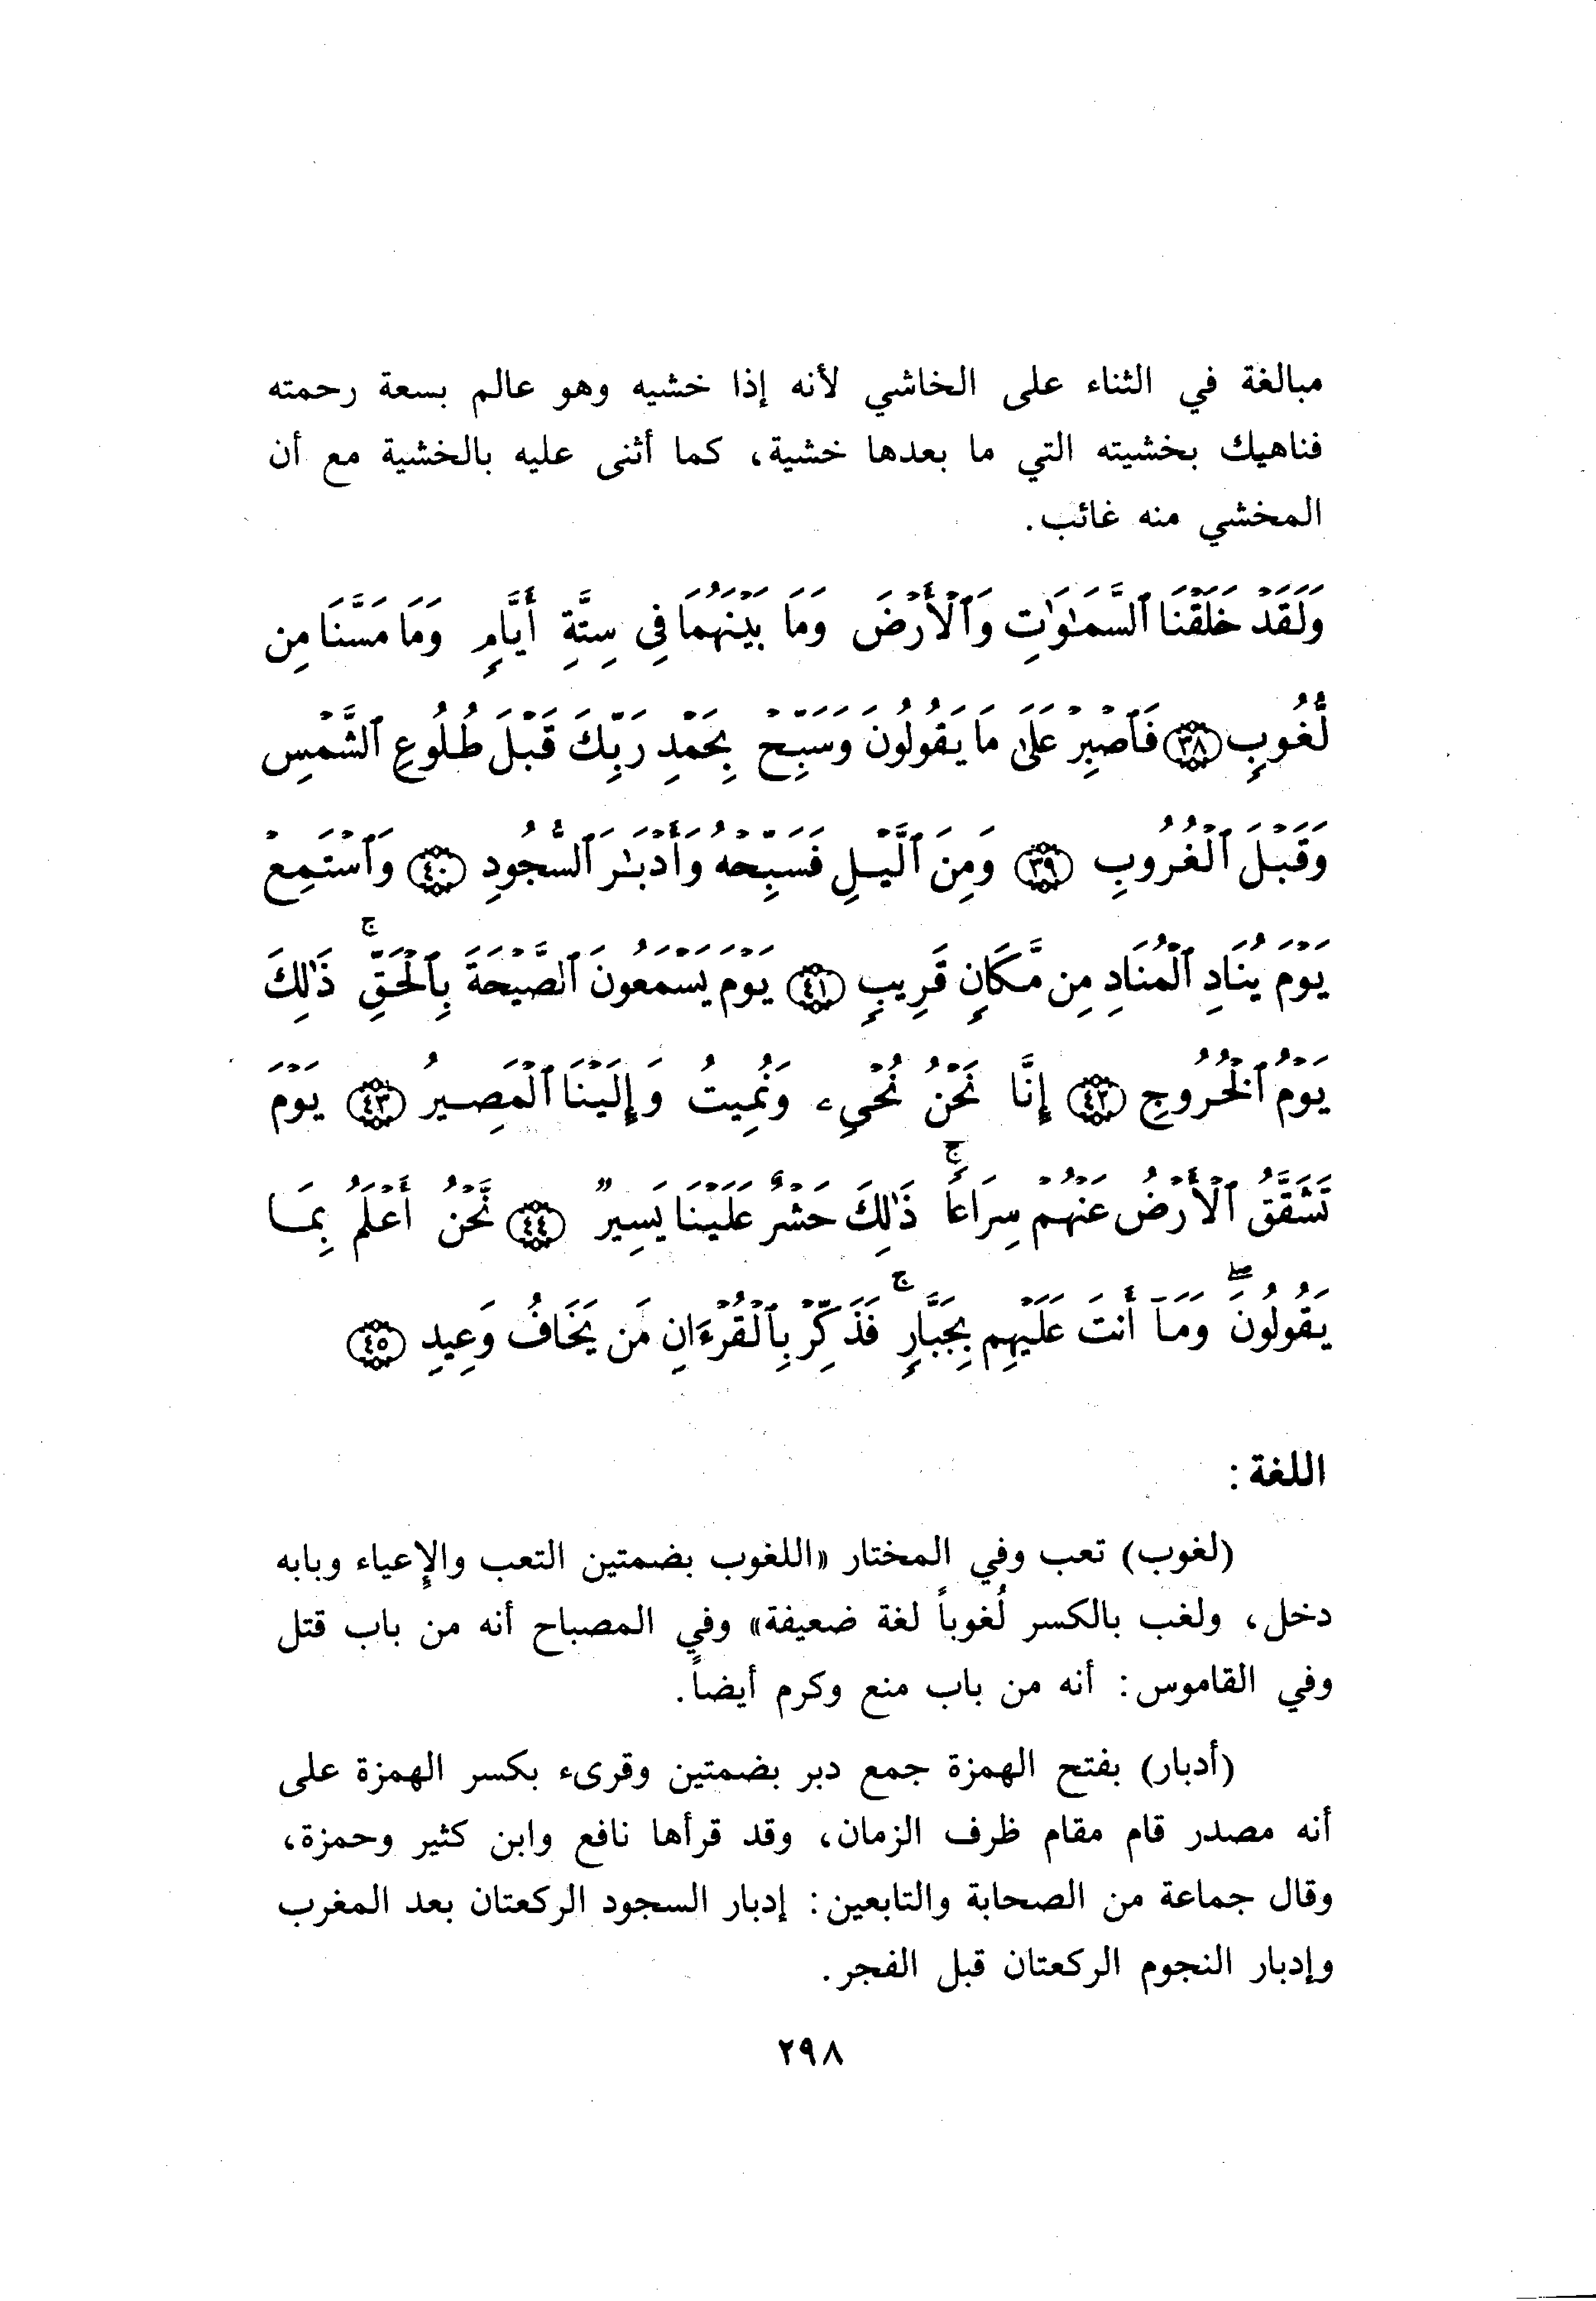 مبالغة في الثناء على الخاشي لأنه إذا خشيه وهو عالم بسعة رحمته
فناهيك بخشيته التي ما بعدها خشية، كما أثنى عليه بالخشية مع أن
المخشي منه غائب.
وَلَقَدْ خَلَقْنَا ٱلسَّمَـٰوَٰتِ وَٱلْأَرْضَ وَمَا بَيْنَهُمَا فِى سِتَّةِ أَيَّامٍ وَمَا مَسَّنَا مِن
لُّغُوبٍ ﴿٣٨﴾ فَٱصْبِرْ عَلَىٰ مَا يَقُولُونَ وَسَبِّحْ بِحَمْدِ رَبِّكَ قَبْلَ طُلُوعِ ٱلشَّمْسِ
وَقَبْلَ ٱلْغُرُوبِ ﴿٣٩﴾ وَمِنَ ٱلَّيْلِ فَسَبِّحْهُ وَأَدْبَـٰرَ ٱلسُّجُودِ ﴿٤٠﴾ وَٱسْتَمِعْ
يَوْمَ يُنَادِ ٱلْمُنَادِ مِن مَّكَانٍ قَرِيبٍ ﴿٤١﴾ يَوْمَ يَسْمَعُونَ ٱلصَّيْحَةَ بِٱلْحَقِّ ۚ ذَٰلِكَ
يَوْمُ ٱلْخُرُوجِ ﴿٤٢﴾ إِنَّا نَحْنُ نُحْىِۦ وَنُمِيتُ وَإِلَيْنَا ٱلْمَصِيرُ ﴿٤٣﴾ يَوْمَ
تَشَقَّقُ ٱلْأَرْضُ عَنْهُمْ سِرَاعًا ۚ ذَٰلِكَ حَشْرٌ عَلَيْنَا يَسِيرٌ ﴿٤٤﴾ نَّحْنُ أَعْلَمُ بِمَا
يَقُولُونَ ۖ وَمَآ أَنتَ عَلَيْهِم بِجَبَّارٍ ۚ فَذَكِّرْ بِٱلْقُرْءَانِ مَن يَخَافُ وَعِيدِ ﴿٤٥﴾
اللغة :
(لغوب) تعب وفي المختار «اللغوب بضمتين التعب والإعياء وبابه
دخل، ولغب بالكسر لُغوباً لغة ضعيفة» وفي المصباح أنه من باب قتل
وفي القاموس: أنه من باب منع وكرم أيضاً.
(أدبار) بفتح الهمزة جمع دبر بضمتين وقرىء بكسر الهمزة على
أنه مصدر قام مقام ظرف الزمان، وقد قرأها نافع وابن كثير وحمزة،
وقال جماعة من الصحابة والتابعين: إدبار السجود الركعتان بعد المغرب
وإدبار النجوم الركعتان قبل الفجر.
٢٩٨